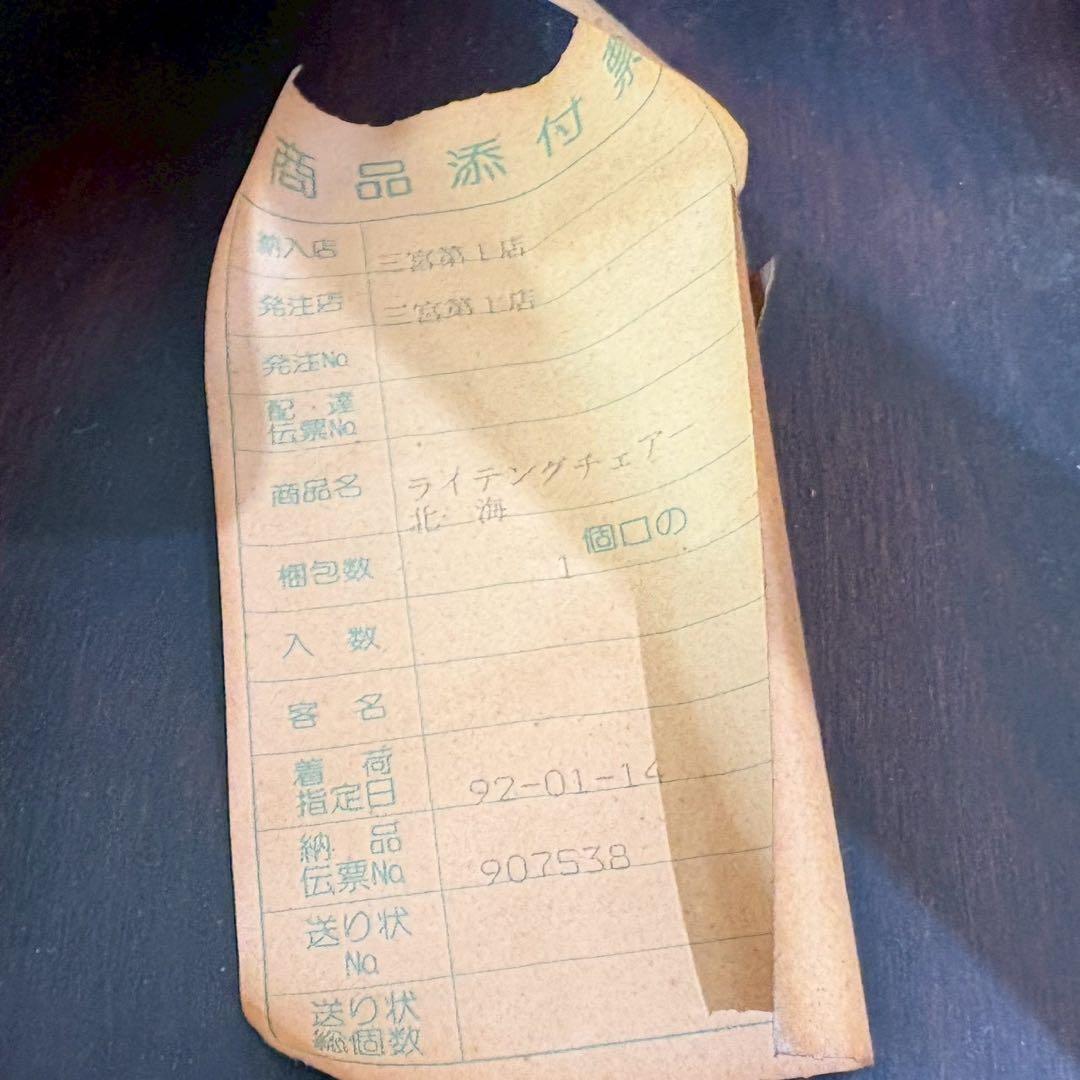 商品添付票
納入店 三宮第1店
発注店 三宮第1店
発注No.
配・達
伝票No.
商品名 ライテングチェアー
北 海
個口の
梱包数 1
入 数
客 名
着 荷
指定日 92-01-14
納 品
伝票No. 907538
送り状
No.
送り状
総個数